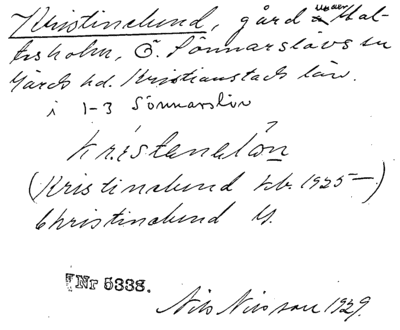 Kristinelund, gård under Mal-
tesholm, Ö. Sönnarslövs sn
Gärds hd. Kristianstads län.
i 1-3 Sönnarslöv
(Kristinelund kb. 1925—)
Christinelund G.
Nr 5338.
Nils Nilsson 1929.